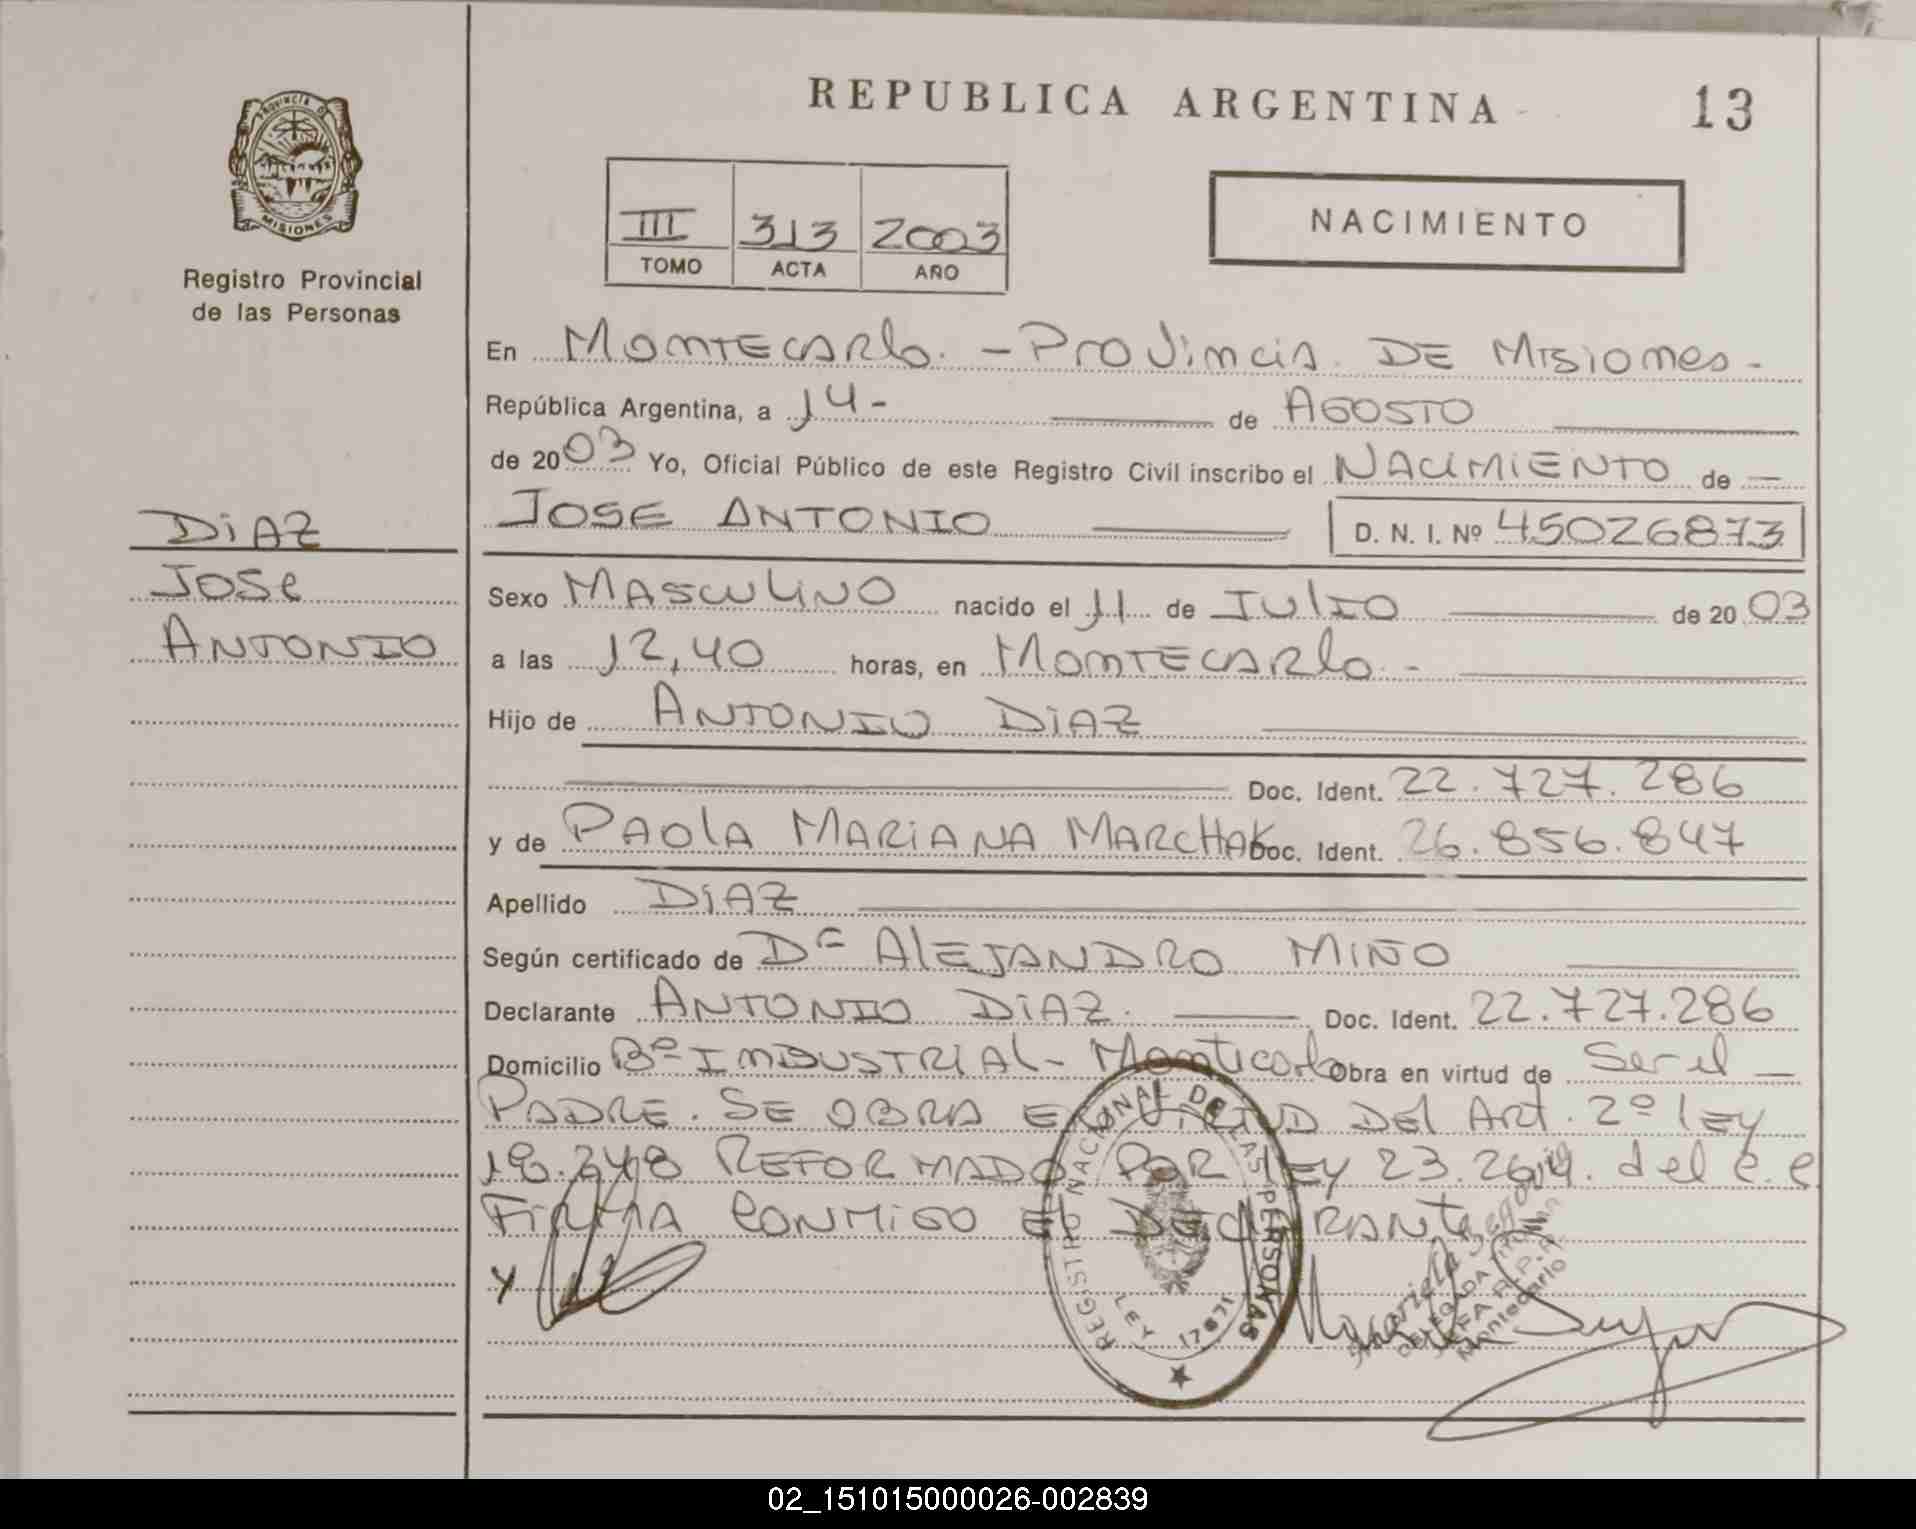 REPUBLICA ARGENTINA
13
PROVINCIA DE
MISIONES
Registro Provincial
de las Personas
III 313 2003
TOMO ACTA AÑO
NACIMIENTO
En MONTECARLO. - PROVINCIA DE MISIONES -
República Argentina, a 14 - de AGOSTO
de 2003 Yo, Oficial Público de este Registro Civil inscribo el NACIMIENTO de —
JOSE ANTONIO D. N. I. Nº 45026873
DIAZ
JOSE
ANTONIO
Sexo MASCULINO nacido el 11 de JULIO de 2003
a las 12,40 horas, en MONTECARLO. -
Hijo de ANTONIO DIAZ
Doc. Ident. 22.727.286
y de PAOLA MARIANA MARCHAK Doc. Ident. 26.856.847
Apellido DIAZ
Según certificado de Dr ALEJANDRO MIÑO
Declarante ANTONIO DIAZ. Doc. Ident. 22.727.286
Domicilio Bº INDUSTRIAL - Montecarlo Obra en virtud de Ser el —
PADRE. SE OBRA EN VIRTUD DEL Art. 2º LEY
18.248 REFORMADO POR LEY 23.264. del C.C
FIRMA CONMIGO EL DECLARANTE
Y
REGISTRO NACIONAL DE LAS PERSONAS
LEY 17671
DELEGADA
JEFA R.P.P.
Montecarlo
02_151015000026-002839